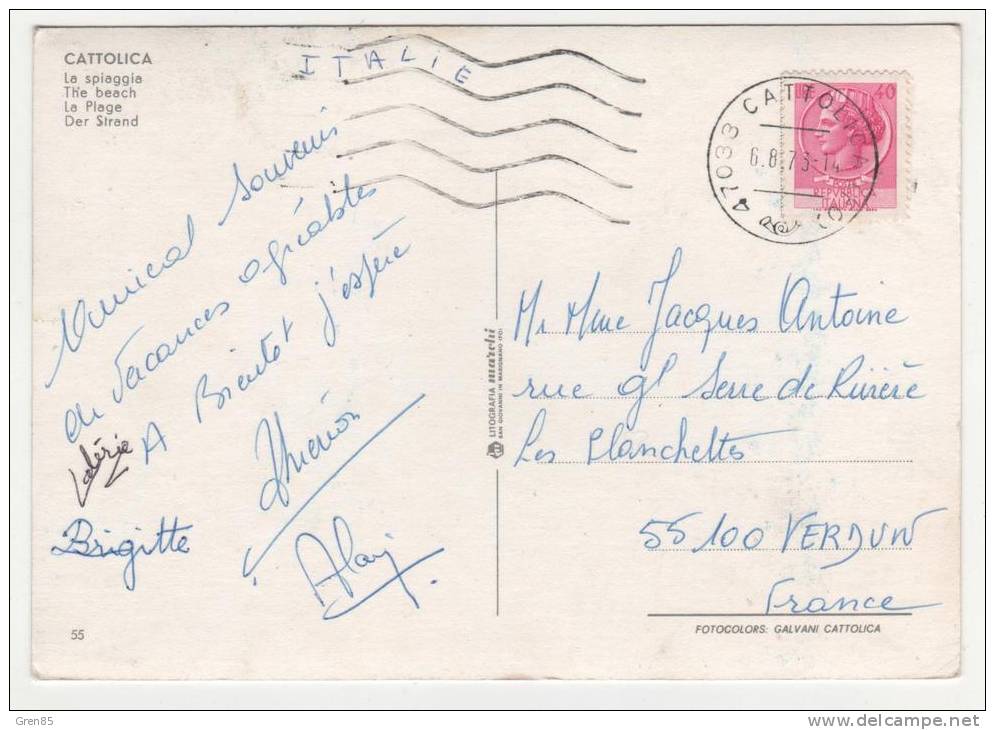 CATTOLICA
La spiaggia
The beach
La Plage
Der Strand
ITALIE
Amical souvenir
de vacances agréables
A Bientot j'espère
Valérie
Brigitte
Alain
55
LITOGRAFIA marchi
SAN GIOVANNI IN MARIGNANO (FO)
LIRE 40
POSTE
REPVBBLICA
ITALIANA
47033 CATTOLICA
6.8.73-14
Mr Mme Jacques Antoine
rue gl Serre de Rivière
Les Planchettes
55100 VERDUN
France
FOTOCOLORS: GALVANI CATTOLICA
Gren85
http://www.delcampe.net